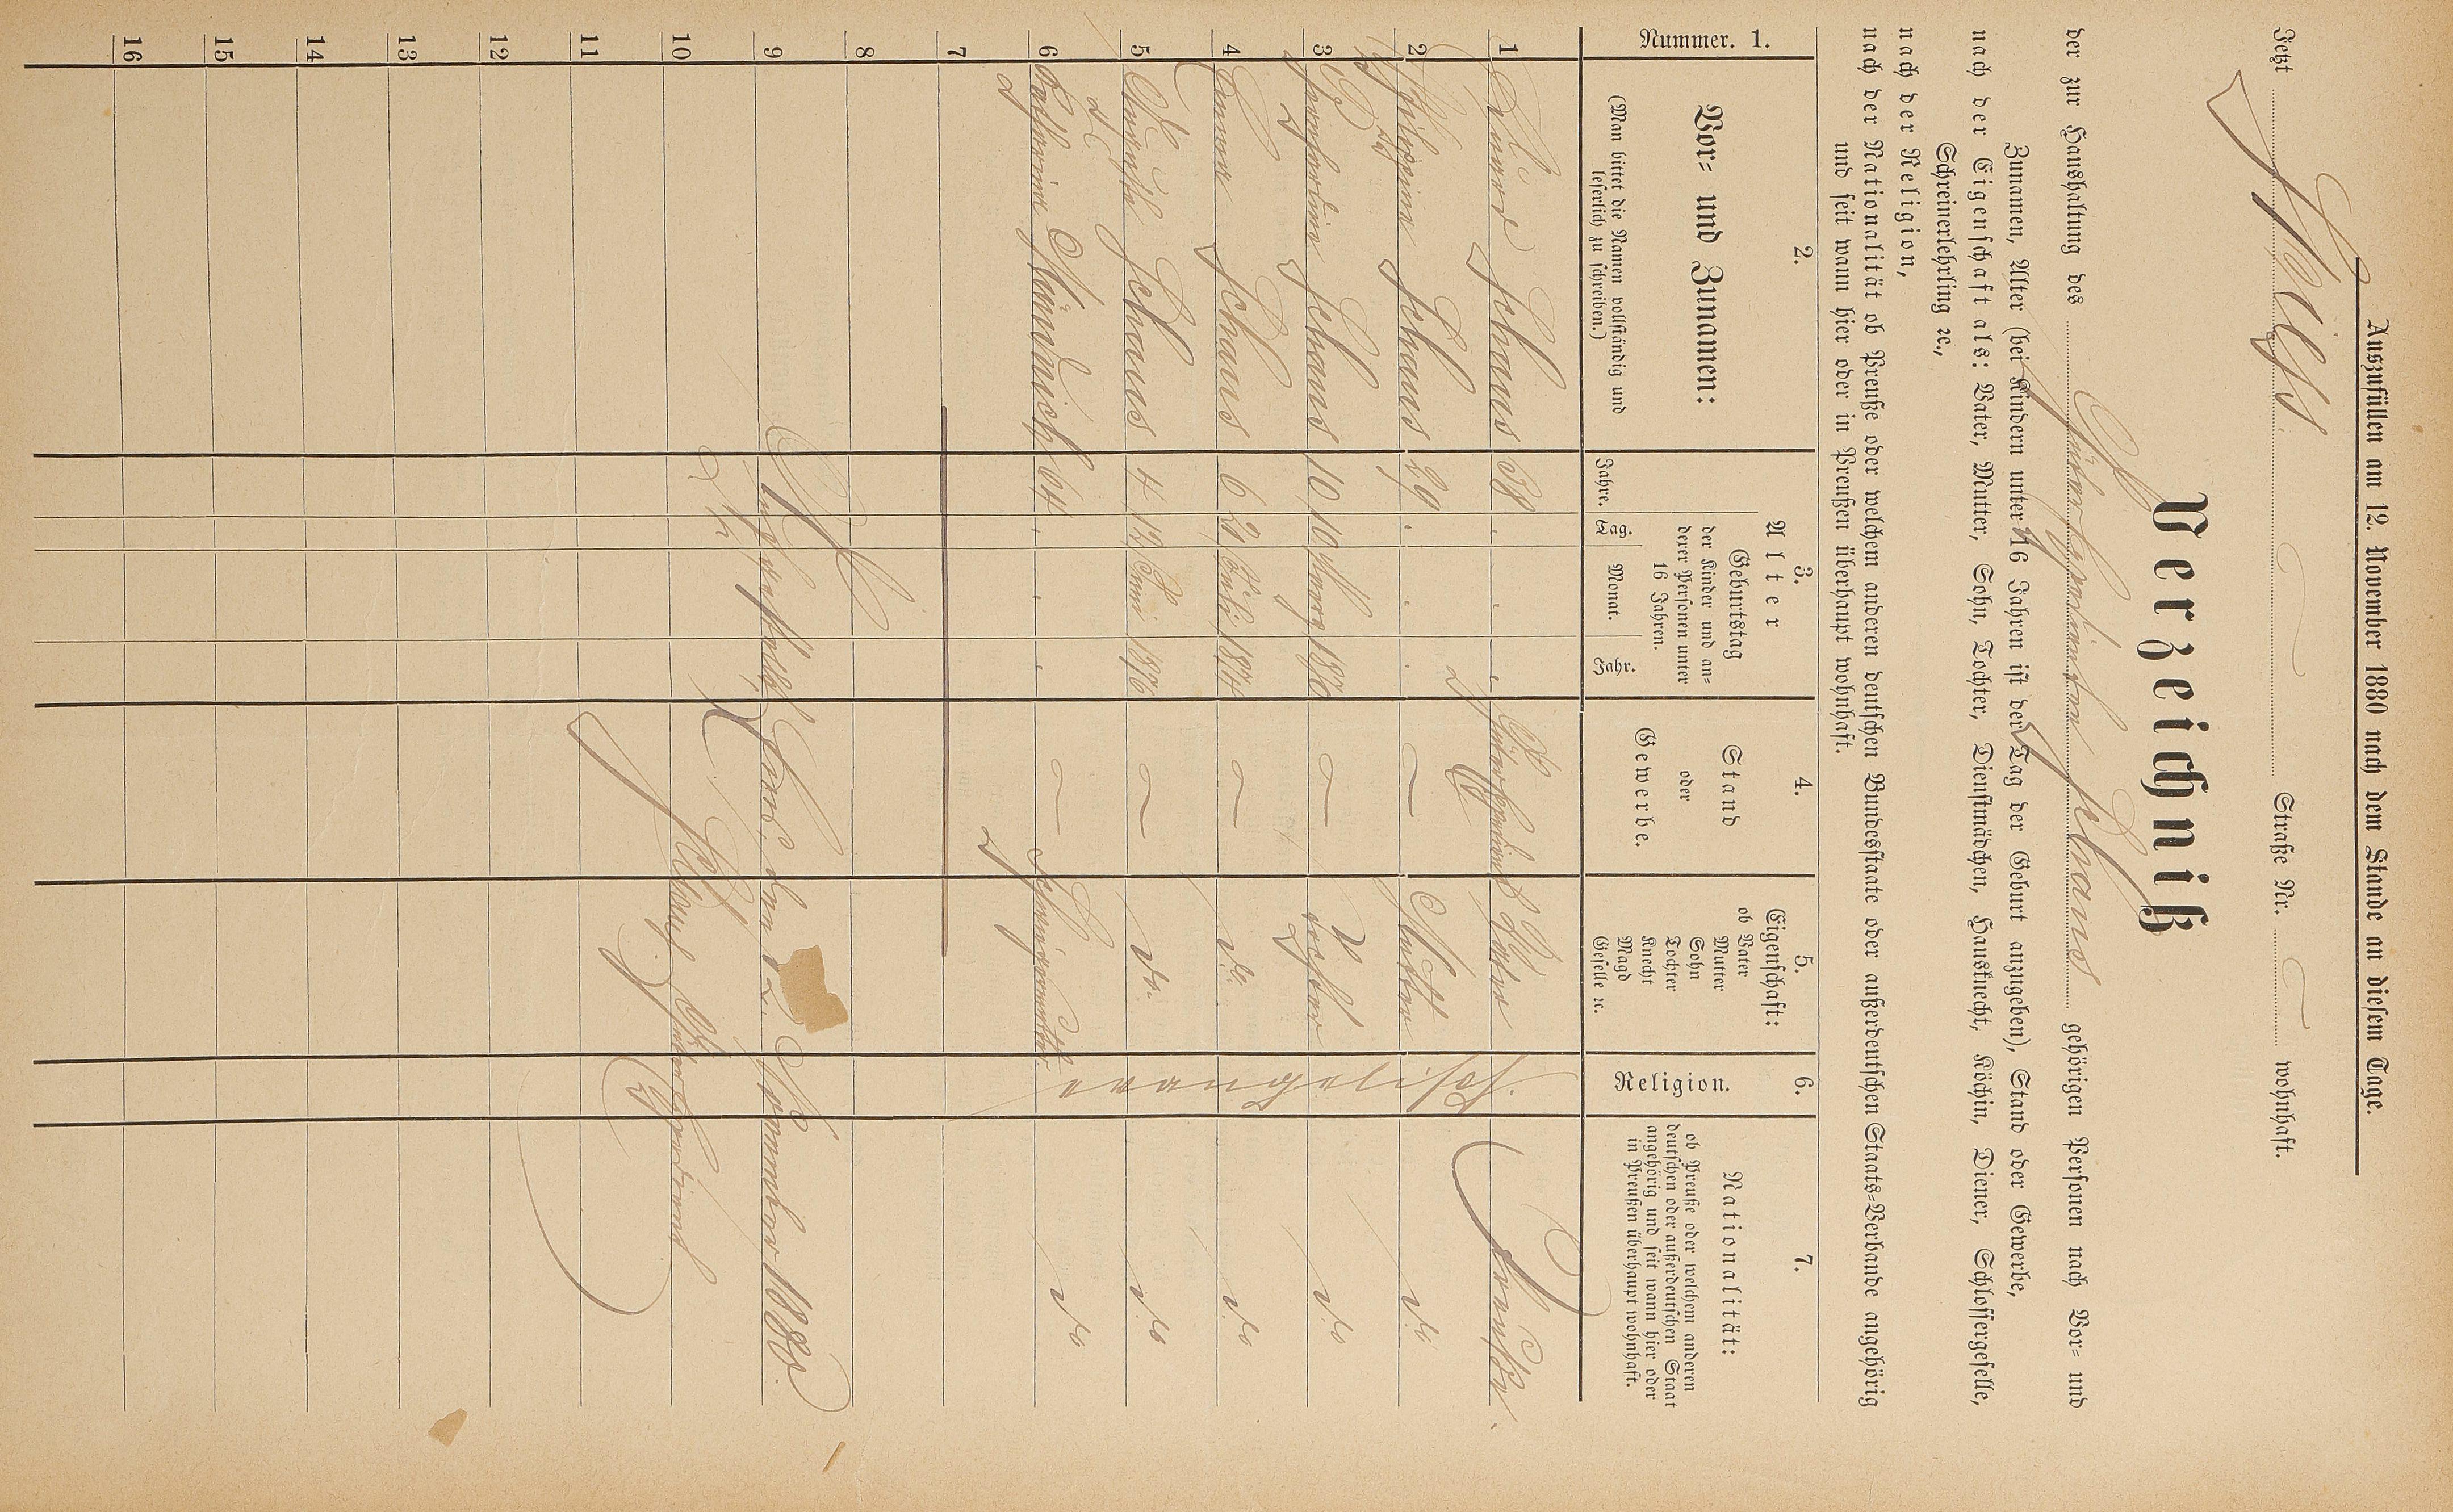 Auszufüllen am 12. November 1880 nach dem Stande an diesem Tage.
Jetzt Spiess. Straße Nr. wohnhaft.
Verzeichniß
der zur Haushaltung des Güterexpedienten Schaus gehörigen Personen nach Vor- und
Zunamen, Alter (bei Kindern unter 16 Jahren ist der Tag der Geburt anzugeben), Stand oder Gewerbe,
nach der Eigenschaft als: Vater, Mutter, Sohn, Tochter, Dienstmädchen, Hausknecht, Köchin, Diener, Schlossergeselle,
Schreinerlehrling ꝛc.,
nach der Religion,
nach der Nationalität ob Preuße oder welchem anderen deutschen Bundesstaate oder außerdeutschen Staats-Verbande angehörig
und seit wann hier oder in Preußen überhaupt wohnhaft.
Nummer. 1.
2.
Vor- und Zunamen:
(Man bittet die Namen vollständig und
leserlich zu schreiben.)
3.
Alter
Jahre.
Geburtstag
der Kinder und an-
derer Personen unter
16 Jahren.
Tag. Monat. Jahr.
4.
Stand
oder
Gewerbe.
5.
Eigenschaft:
ob Vater
Mutter
Sohn
Tochter
Knecht
Magd
Geselle ꝛc.
6.
Religion.
7.
Nationalität:
ob Preuße oder welchem anderen
deutschen oder außerdeutschen Staat
angehörig und seit wann hier oder
in Preußen überhaupt wohnhaft.
1 Schaus 38 Güterexpedient Vater evangelisch. Preuße.
2 Schaus 29 Mutter do
3 Schaus 10 10 März 1870 Tochter do
4 Emma Schaus 6 21 Juli 1874 do. do
5 Auguste Schaus 4 12 Juni 1876 do. do
6 Catharine Münnich 64 Schwiegermutter do
7
8
9 Aufgestellt, den 12. November 1880.
10 Schaus, Güterexpedient
11
12
13
14
15
16